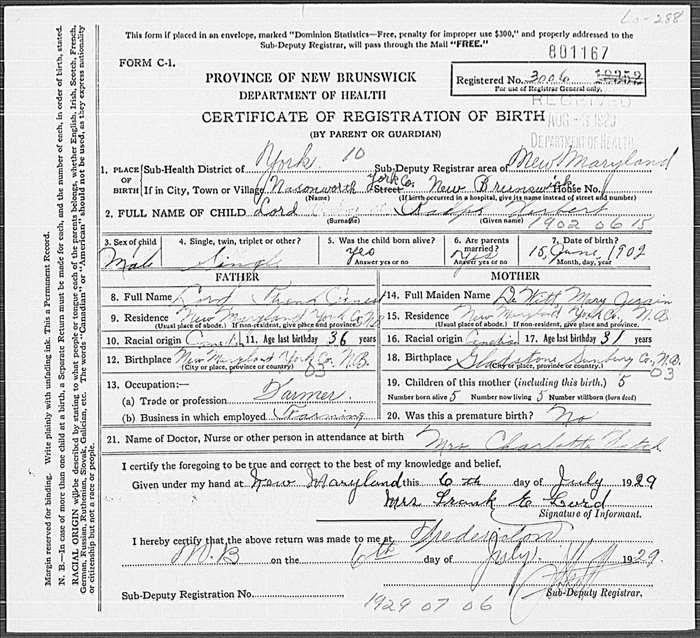 Lo-288
This form if placed in an envelope, marked "Dominion Statistics—Free, penalty for improper use $300," and properly addressed to the
Sub-Deputy Registrar, will pass through the Mail "FREE."
801167
FORM C-1.
Registered No. 3006 19352
For use of Registrar General only.
PROVINCE OF NEW BRUNSWICK
DEPARTMENT OF HEALTH
RECEIVED
AUG 1929
DEPARTMENT OF HEALTH
CERTIFICATE OF REGISTRATION OF BIRTH
(BY PARENT OR GUARDIAN)
1. PLACE OF BIRTH
Sub-Health District of York 10 Sub-Deputy Registrar area of New Maryland
If in City, Town or Village Nasonworth York Co. Street New Brunswick House No.
(Name) (If birth occurred in a hospital, give its name instead of street and number)
2. FULL NAME OF CHILD Lord
(Surname) (Given name) 1902 06 15
3. Sex of child 4. Single, twin, triplet or other? 5. Was the child born alive? 6. Are parents married? 7. Date of birth?
Male Single yes yes 15, June, 1902
Answer yes or no Answer yes or no Month, day, year
FATHER MOTHER
8. Full Name Lord Frank 14. Full Maiden Name De Witt Mary
9. Residence New Maryland York Co. N.B. 15. Residence New Maryland York Co., N.B.
(Usual place of abode.) If non-resident, give place and province. (Usual place of abode.) If non-resident, give place and province.
10. Racial origin 11. Age last birthday 36 years 16. Racial origin 17. Age last birthday 31 years
12. Birthplace New Maryland York Co. N.B. 18. Birthplace Gladstone Sunbury Co., N.B.
(City or place, province or country) 03 (City or place, province or country) 03
13. Occupation:— 19. Children of this mother (including this birth.) 5
(a) Trade or profession Farmer Number born alive 5 Number now living 5 Number stillborn (born dead)
(b) Business in which employed Farming 20. Was this a premature birth? No
21. Name of Doctor, Nurse or other person in attendance at birth Mrs Charlotte
I certify the foregoing to be true and correct to the best of my knowledge and belief.
Given under my hand at New Maryland this 6th day of July 1929
Mrs Frank E Lord
Signature of Informant.
I hereby certify that the above return was made to me at Fredericton
N.B on the 6th day of July. 1929.
Sub-Deputy Registration No. Sub-Deputy Registrar.
1929 07 06
Margin reserved for binding. Write plainly with unfading ink. This a Permanent Record.
N. B.—In case of more than one child at a birth, a Separate Return must be made for each, and the number of each, in order of birth, stated.
RACIAL ORIGIN will be described by stating to what people or tongue each of the parents belongs, whether English, Irish, Scotch, French,
German, Russian, Ruthenian, Slovak, Galician, etc. The words "Canadian" or "American" should not be used, as they express nationality
or citizenship but not a race or people.